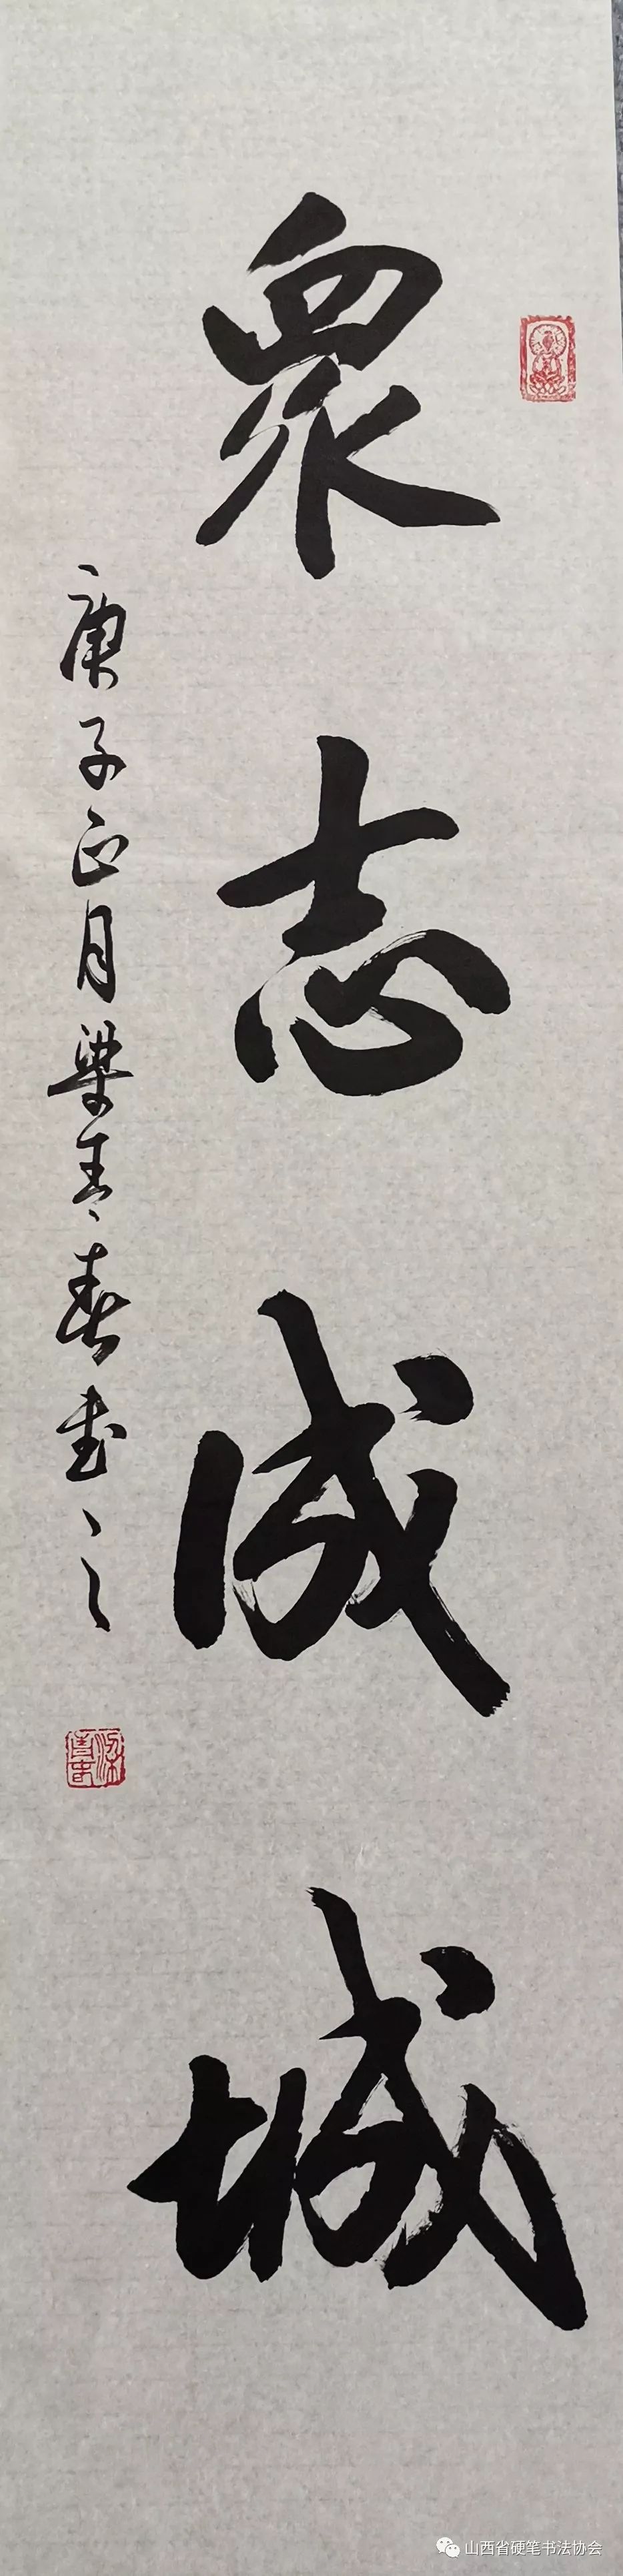 眾志成城
庚子正月梁青春書之
山西省硬笔书法协会